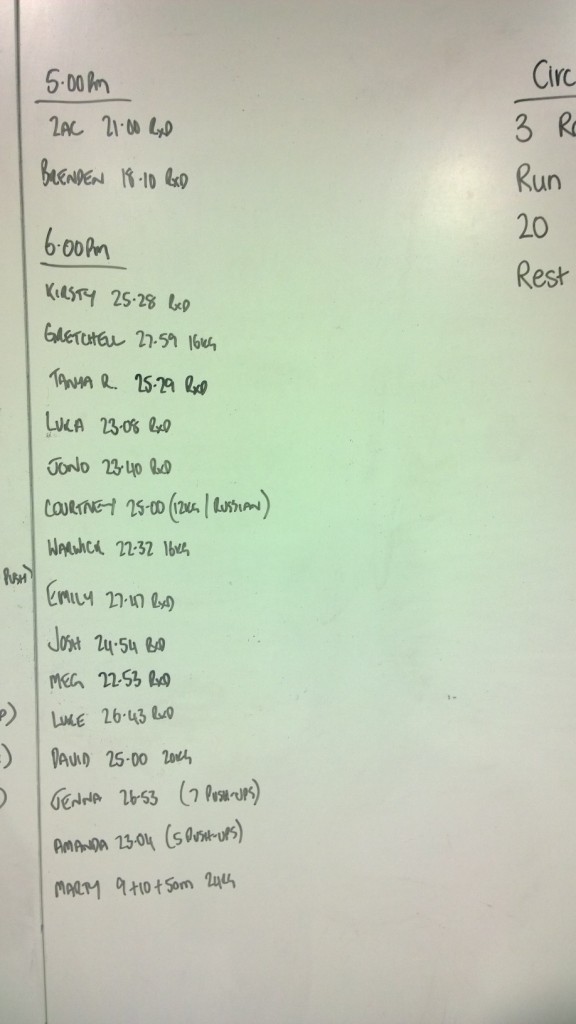 5.00Pm
ZAC 21.00 RxD
BRENDEN 18.10 RxD
6.00Pm
KIRSTY 25.28 RxD
GRETCHELL 27.59 16KG
TANYA R. 25.29 RxD
LUKA 23.08 RxD
JONO 23.40 RxD
COURTNEY 25.00 (12KG / RUSSIAN)
WARWICK 22.32 16KG
EMILY 27.47 RxD
JOSH 24.54 RxD
MEG 22.53 RxD
LUKE 26.43 RxD
DAVID 25.00 20KG
JENNA 26.53 (7 PUSH-UPS)
AMANDA 23.04 (5 PUSH-UPS)
MARTY 9+10+50m 24KG
PUSH)
P)
)
)
Circ
3 Ro
Run
20
Rest